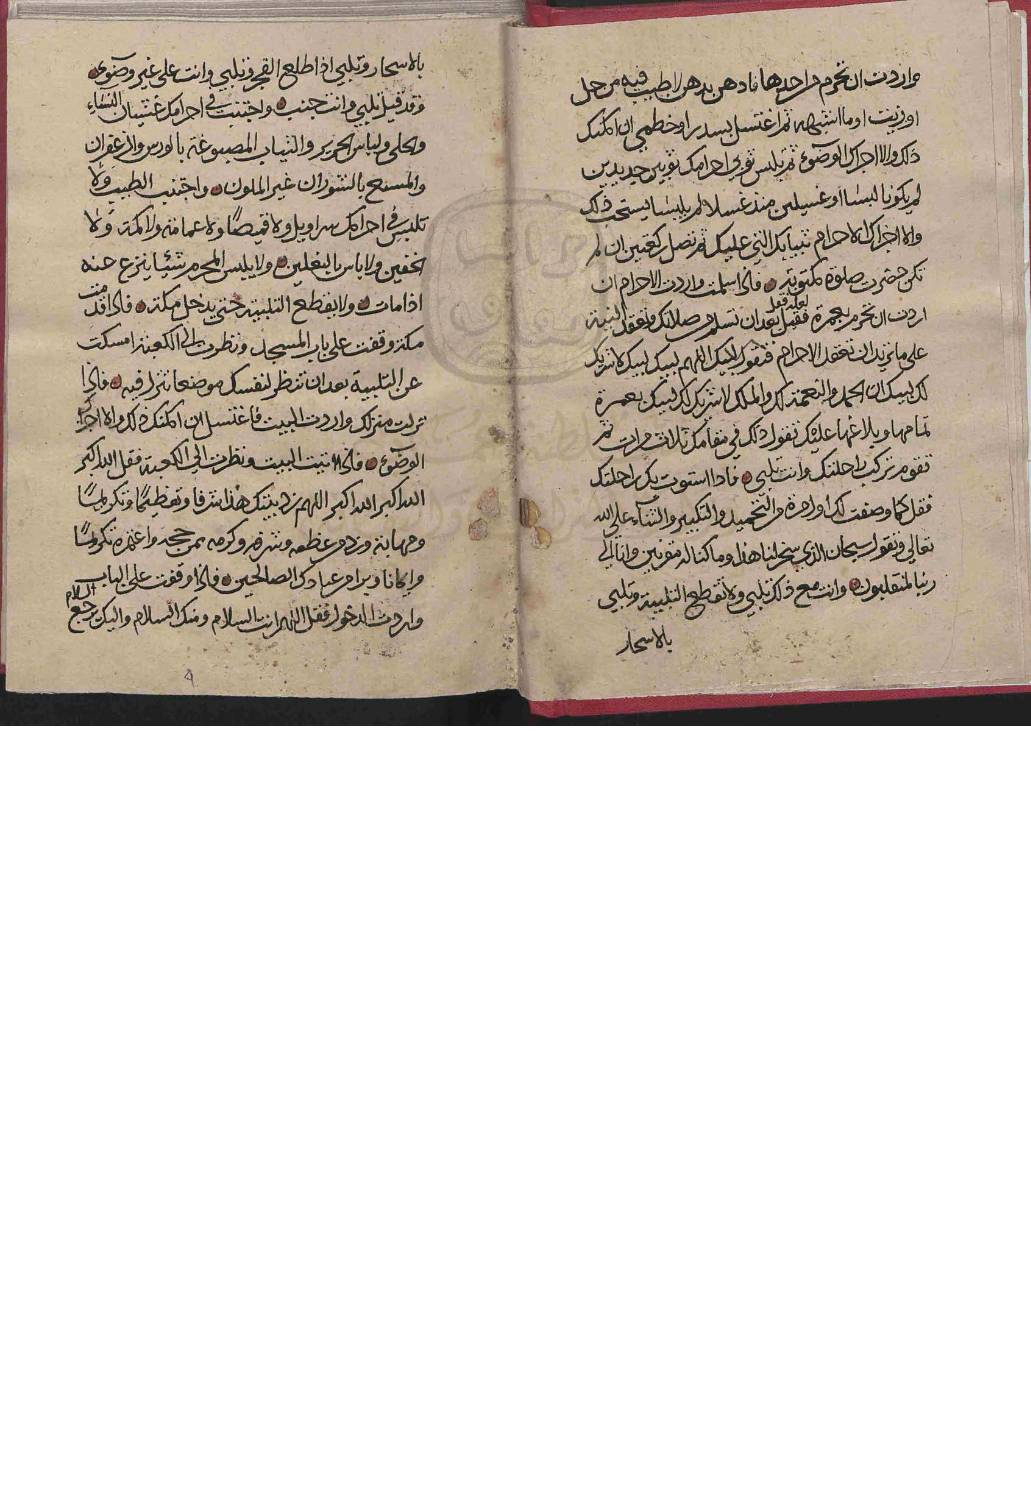 واردت ان تحرم من احدها فادهن بدهن لا طيب فيه من حل
او زيت او ما اشبهه ثم اغتسل بسدر او خطمي ان امكنك
ذلك والا اجزاك الوضوء ثم يلبس ثوبي احرامك ثوبين جديدين
لم يكونا لبسا او غسيلين منذ غسلا لم يلبسا يستحب ذلك
والا اجزاك الاحرام بثيابك التي عليك ثم تصل ركعتين ان لم
تكن حضرت صلوة مكتوبة فاذا سلمت واردت الاحرام ان
اردت ان تحرم بعمرة فقبل بعد ان تسلم من صلاتك وتعقد النية
على ما تريد ان تعقد الاحرام فتقول لبيك اللهم لبيك لبيك لا شريك
لك لبيك ان الحمد والنعمة لك والملك لا شريك لك لبيك بعمرة
تمامها وبلاغها عليك تقول ذلك في مقامك ثلاث مرات ثم
تقوم تركب راحلتك وانت تلبي فاذا استوت بك راحلتك
فقل كما وصفت لك اول مرة من التحميد والتكبير والثناء على الله
تعالى وتقول سبحان الذي سخر لنا هذا وما كنا له مقرنين وانا الى
ربنا لمنقلبون وانت مع ذلك تلبي ولا تقطع التلبية وتلبي
بالاسحار
بالاسحار وتلبي اذا طلع الفجر وتلبي وانت على غير وضوء
وقد قيل تلبي وانت جنب واجتنب في احرامك غشيان النساء
والحلي ولباس الحرير والثياب المصبوغة بالورس والزعفران
والمسبح بالشوران غير الملون واجتنب الطيب ولا
تلبس في احرامك سراويل ولا قميصًا ولا عمامة ولا كمة ولا
الخفين ولا باس بالنعلين ولا يلبس المحرم شيئا ينزع عنه
اذا مات ولا يقطع التلبية حتى يدخل مكة فاذا قدمت
مكة وقفت على باب المسجد ونظرت الى الكعبة امسكت
عن التلبية بعد ان تنظر لنفسك موضعا تنزل فيه فاذا
نزلت منزلك واردت البيت فاغتسل ان امكنك ذلك والا اجزاك
الوضوء فاذا اتيت البيت ونظرت الى الكعبة فقل الله اكبر
الله اكبر الله اكبر اللهم زد بيتك هذا شرفا وتعظيمًا وتكريمًا
ومهابة وزد من عظمه وشرفه وكرمه ممن حجه واعتمره تكريمًا
وايمانا وبرا من عبادك الصالحين فاذا وقفت على الباب
واردت الدخول فقل اللهم انت السلام ومنك السلام واليك يرجع السلام